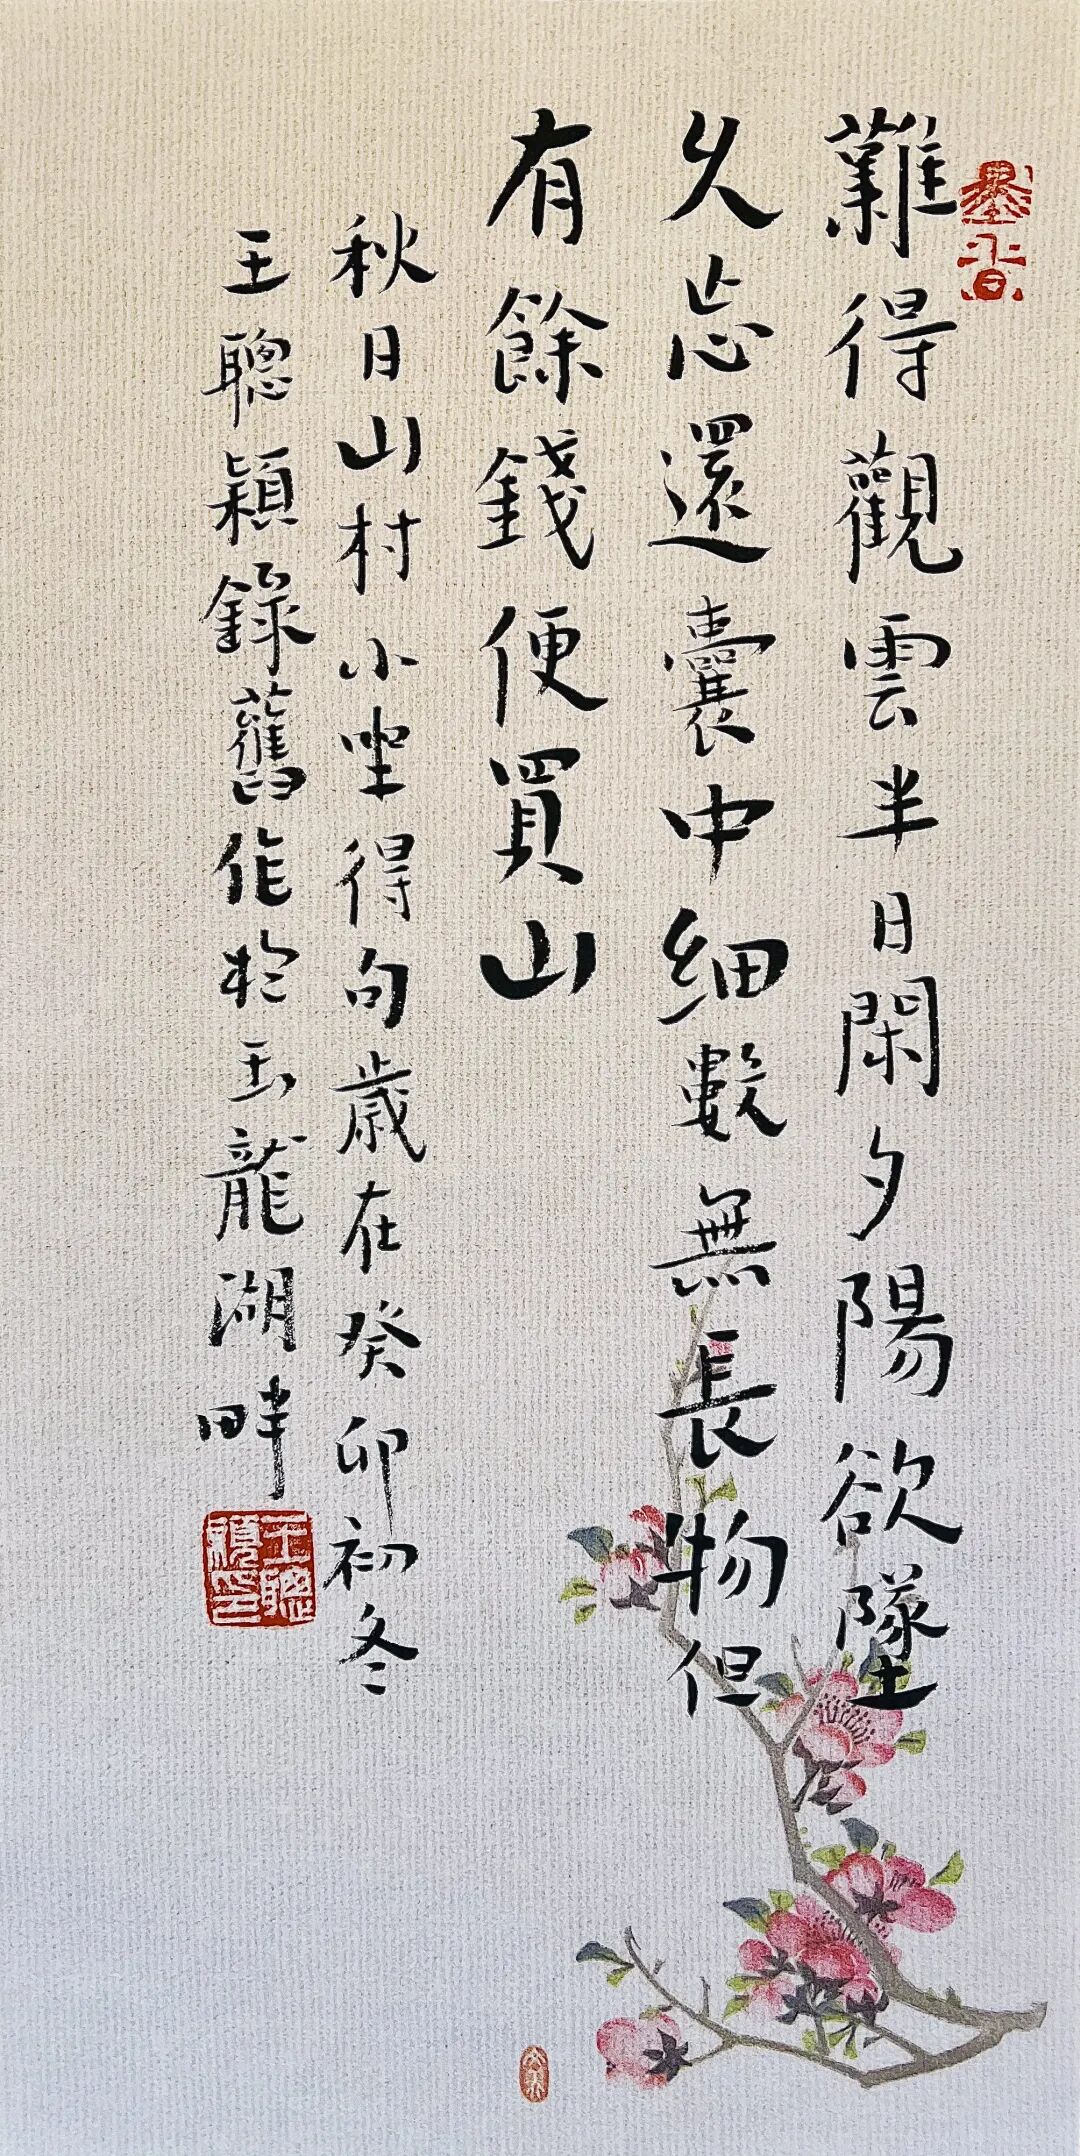 墨香
難得觀雲半日閑夕陽欲墜
久忘還囊中細數無長物但
有餘錢便買山
秋日山村小坐得句歲在癸卯初冬
王聰穎錄舊作於玉龍湖畔
王聰穎印